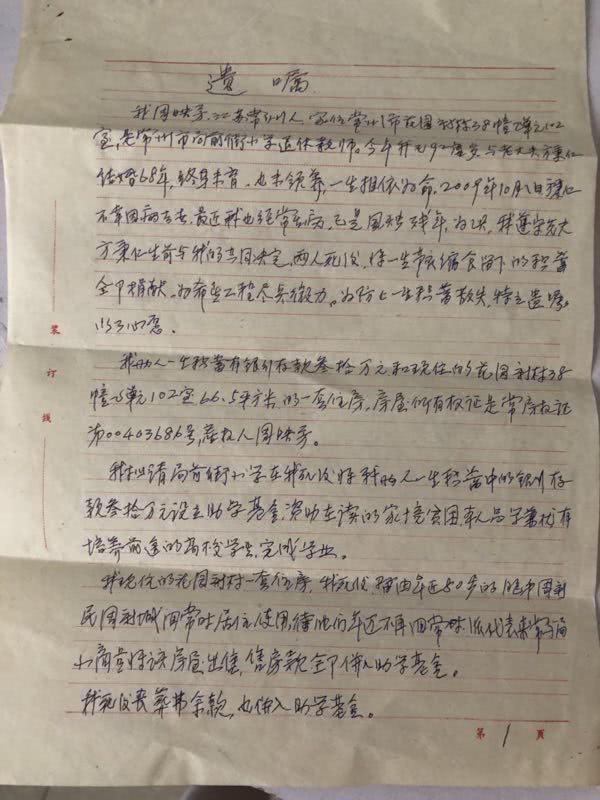 遗嘱
我周映芬,江苏常州人,家住常州市花园新村38幢乙单元102
室,是常州市局前街小学退休教师。今年已92高岁,与老丈夫方秉仁
结婚68年,终身未育,也未领养,一生相依为命,2009年10月八日秉仁
不幸因病去世,最近我也经常生病,已是风烛残年,为此,我遵守先夫
方秉仁生前与我的共同决定,两人死后,将一生节衣缩食留下的积蓄
全部捐献,为希望工程尽点微力。为防止一生积蓄散失,特立遗嘱,
以了心愿。
我两人一生积蓄有银行存款叁拾万元和现住的花园新村38
幢乙单元102室66.5平方米的一套住房,房屋所有权证是常房权证
第00403686号,产权人周映芬。
我拟请局前街小学在我死后将我两人一生积蓄中的银行存
款叁拾万元设立助学基金,资助在读的家境贫困,本人品学兼优有
培养前途的高校学生,完成学业。
我现住的花园新村一套住房,我死后,留由年近80岁的
民周新城回常时居住使用,待他们年迈不再回常时,派代表来常与局
小商量将该房屋出售,售房款全部併入助学基金。
我死后丧葬费余款,也併入助学基金。
装订线
第1页